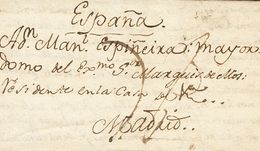 España.
A Dn. Manl. Espiñeira: mayor
domo del Exmo. Sor. Marques de Mos:
residente en la Casa de
Madrid..